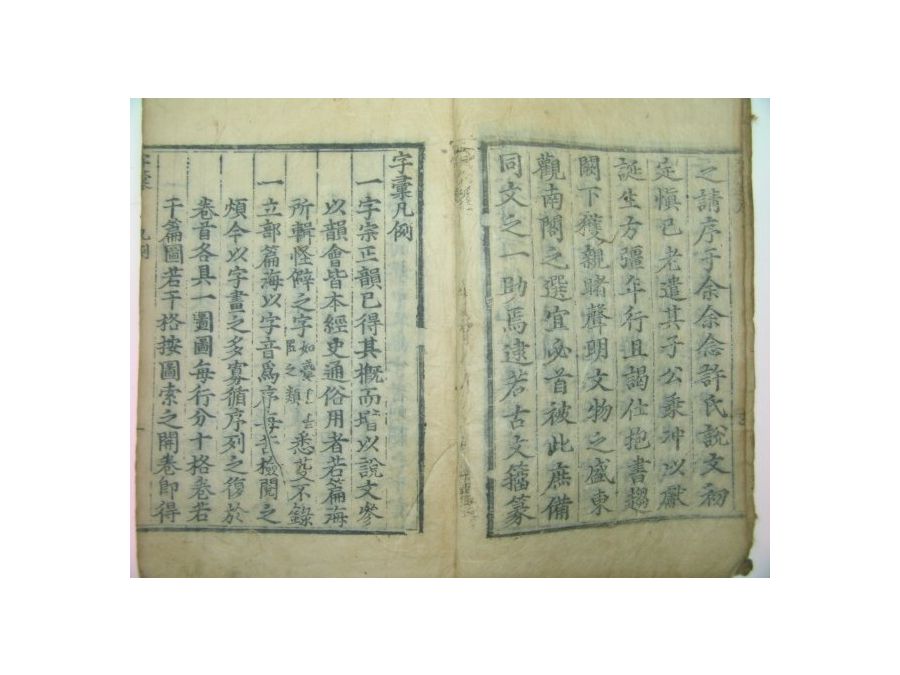 之請序于余余念許氏說文初
定愼已老遣其子公乘冲以獻
誕生方彊年行且謁仕抱書趨
闕下獲親睹聲明文物之盛東
觀南閣之選宜必首被此庶備
同文之一助焉逮若古文籒篆
字彙凡例
一字宗正韻已得其槪而增以說文參
以韻會皆本經史通俗用者若篇海
所輯怪僻之字如之類悉芟不錄
一立部篇海以字音爲序每苦檢閱之
煩今以字畫之多寡循序列之復於
卷首各具一圖圖每行分十格卷若
干篇圖若干格按圖索之開卷即得
字彙 凡例